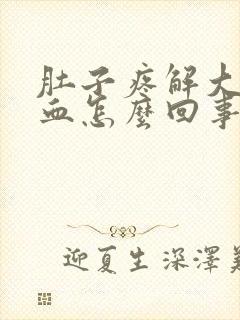 肚子疼解大
血怎麽回事
迎夏生深澤